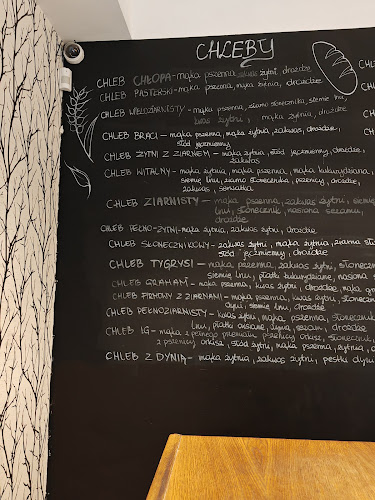 CHLEBY
CHLEB CHŁOPA - mąka pszenna, zakwas żytni, drożdże
CHLEB PASTERSKI - mąka pszenna, mąka żytnia, drożdże
CHLEB WIELOZIARNISTY - mąka pszenna, ziarno słonecznika, siemię lnu,
kwas żytni, mąka żytnia, drożdże
CHLEB BRACI - mąka pszenna, mąka żytnia, zakwas, drożdże,
słód jęczmienny
CHLEB ŻYTNI Z ZIARNEM - mąka żytnia, słód jęczmienny, drożdże,
zakwas
CHLEB WITALNY - mąka żytnia, mąka pszenna, mąka kukurydziana,
siemię lnu, ziarno słonecznika, pszenicy, drożdże,
zakwas, serwatka
CHLEB ZIARNISTY - mąka pszenna, zakwas żytni, siemię
lnu, słonecznik, nasiona sezamu,
drożdże
CHLEB -ŻYTNI - mąka żytnia, zakwas żytni, drożdże
CHLEB SŁONECZNIKOWY - zakwas żytni, mąka żytnia, ziarna sło
słód jęczmienny, drożdże
CHLEB TYGRYSI - mąka pszenna, zakwas żytni, słoneczn
siemię lnu, płatki kukurydziane, nasiona s
CHLEB GRAHAM - mąka pszenna, kwas żytni, drożdże, mąka gr
CHLEB FIRMOWY Z ZIARNAMI - mąka pszenna, kwas żytni, słonecznik
siemię lnu, drożdże
CHLEB PEŁNOZIARNISTY - kwas żytni, mąka pszenna, słonecznik
lnu, płatki owsiane, dynia, sezam, drożdże
CHLEB IG - mąka z pełnego przemiału pszenicy orkisz, słonecznik,
z pszenicy orkisz, słód żytni, mąka pszenna, żytnia, d
CHLEB Z DYNIĄ - mąka żytnia, zakwas żytni, pestki dyni
CHL
CHL